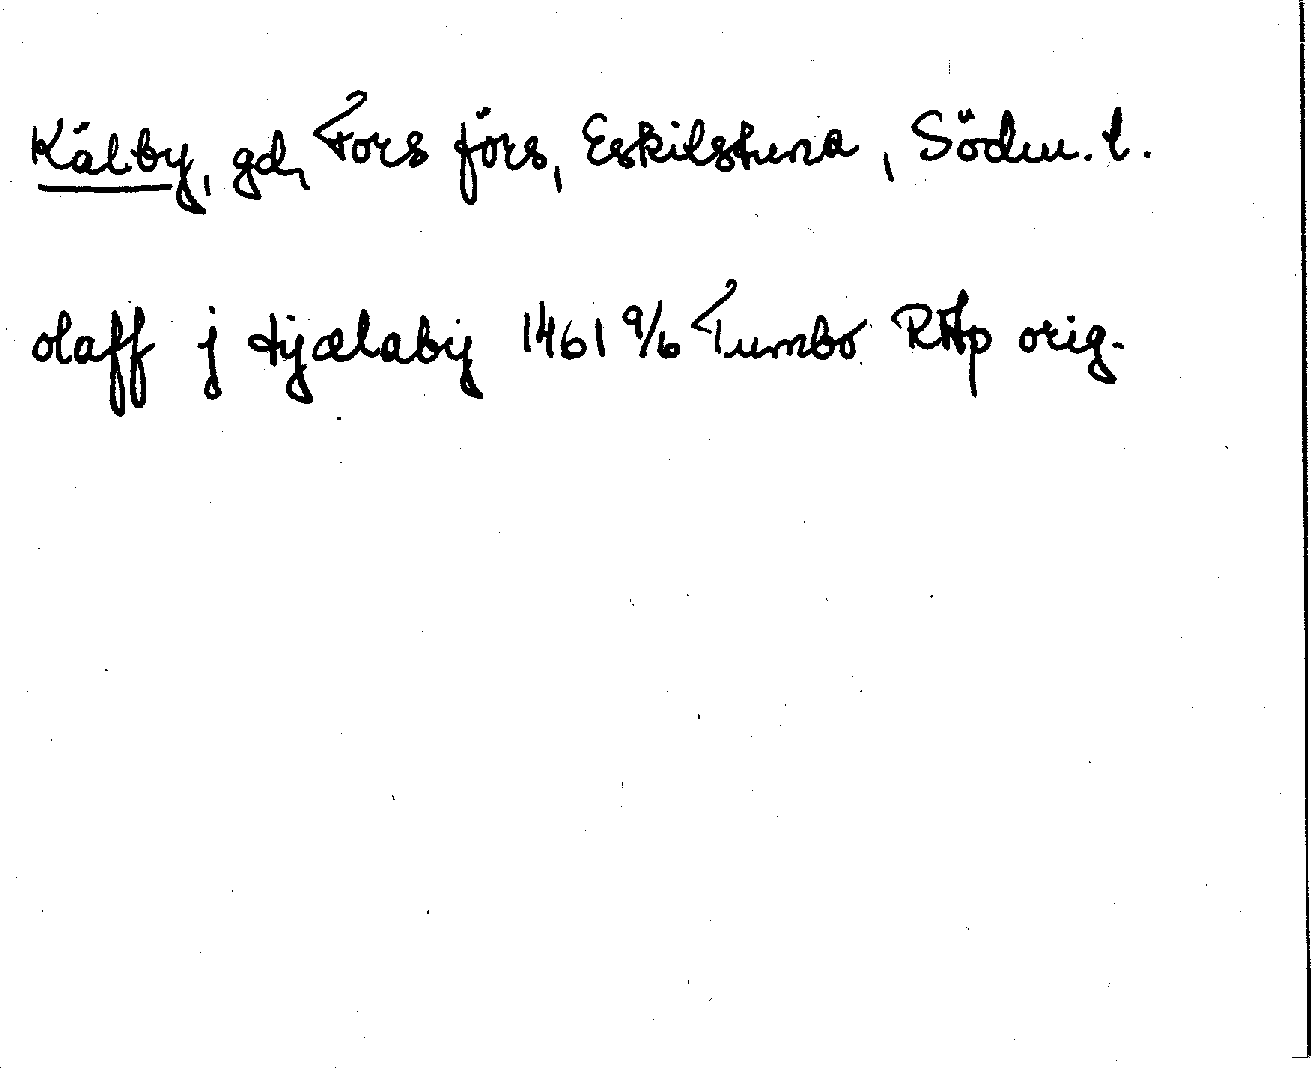 Kälby, gd, Fors förs, Eskilstuna, Södm. l.
olaff j Hjælaby 1461 9/6 Tumbo RAp orig.